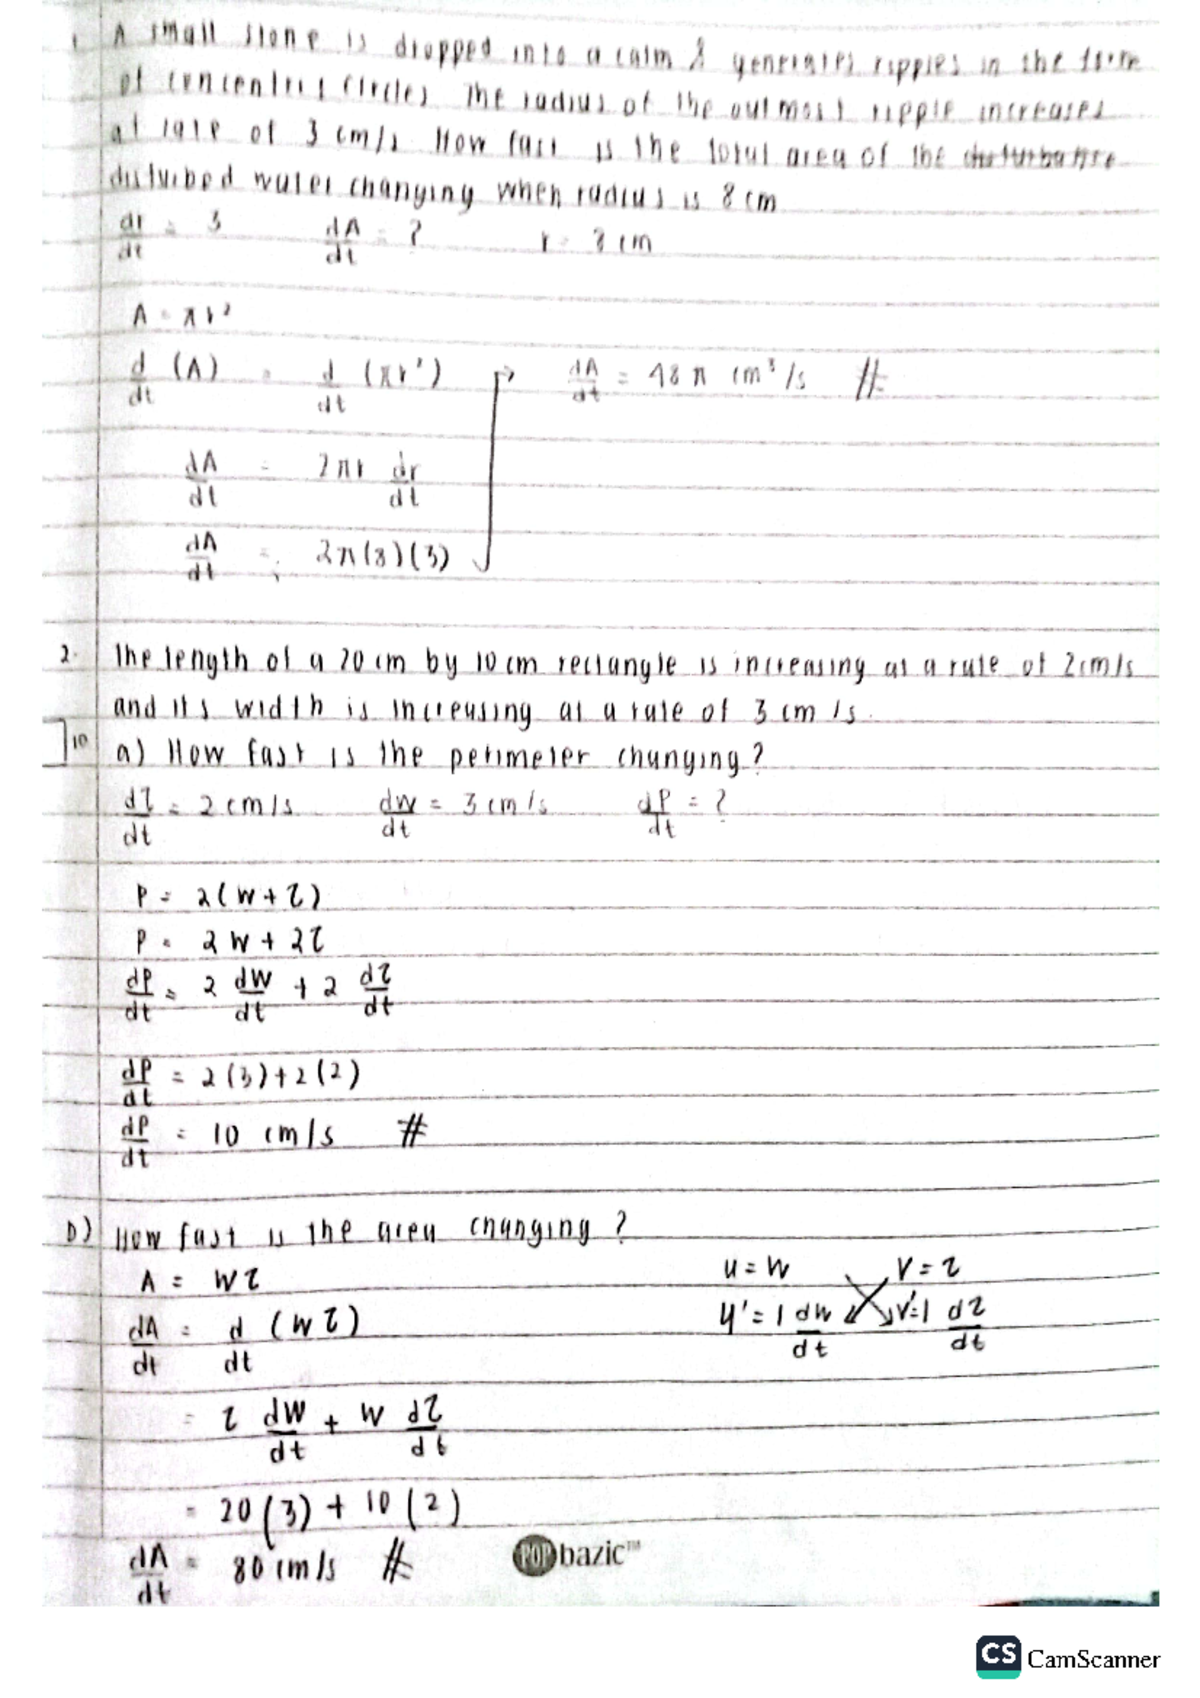 1 A small stone is dropped into a calm & generates ripples in the form
of concentric circles The radius of the outmost ripple increases
at rate of 3 cm/s How fast is the total area of the disturbance
disturbed water changing when radius is 8 cm
dr/dt = 3 dA/dt = ? r = 8 cm
A = πr²
d/dt (A) = d/dt (πr²) → dA/dt = 48π cm³/s #
dA/dt = 2πr dr/dt
dA/dt = 2π(8)(3)
2. The length of a 20 cm by 10 cm rectangle is increasing at a rate of 2cm/s
and its width is increasing at a rate of 3 cm/s.
10 a) How fast is the perimeter changing?
dl/dt = 2 cm/s dw/dt = 3 cm/s dP/dt = ?
P = 2(w+l)
P = 2w + 2l
dP/dt = 2 dw/dt + 2 dl/dt
dP/dt = 2(3)+2(2)
dP/dt = 10 cm/s #
b) How fast is the area changing?
A = wl u = w v = l
dA/dt = d/dt (wl) u' = 1 dw/dt v' = 1 dl/dt
= l dw/dt + w dl/dt
= 20(3) + 10(2)
dA/dt = 80 cm/s #
POP bazic™
CS CamScanner